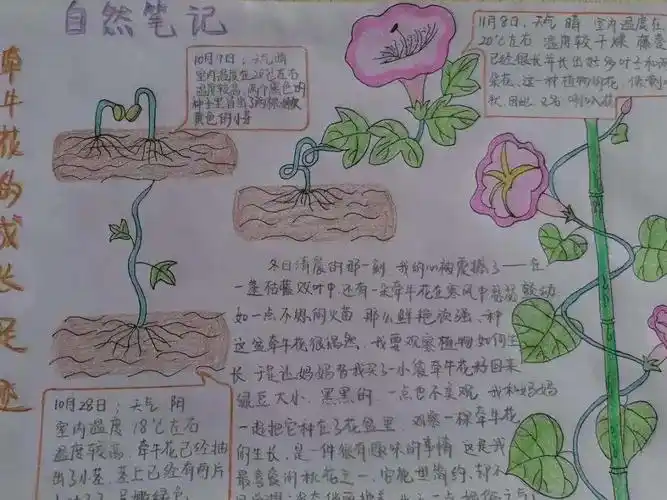 自然笔记
牵牛花的成长足迹
10月9日；天气 晴
室内温度在20℃左右
温度较高，两个黑色的
种子里冒出了两棵嫩
黄色的小芽
11月8日，天气 晴 室内温度在
20℃左右 温度较干燥 藤蔓
已经很长并长出好多叶子和两
朵花，这一种植物的花，像喇叭
状，因此又名喇叭花
冬日清晨的那一刻 我的心被震撼了——在
一蓬枯藤败叶中，还有一朵牵牛花在寒风中轻动
如一点不熄的火苗 那么鲜艳 顽强、种
这盆牵牛花很偶然，我要观察植物如何生
长 于是让妈妈帮我买了一小袋牵牛花籽回来
绿豆大小，黑黑的 一点也不美观 我和妈妈
一起把它种在了花盆里 观察一棵牵牛花
的生长，是一件很有趣味的事情 这是我
最喜爱的花之一，它花型简约，却不
10月28日；天气 阴
室内温度 18℃左右
温度较高，牵牛花已经抽
出了小茎，茎上已经有两片
嫩绿色